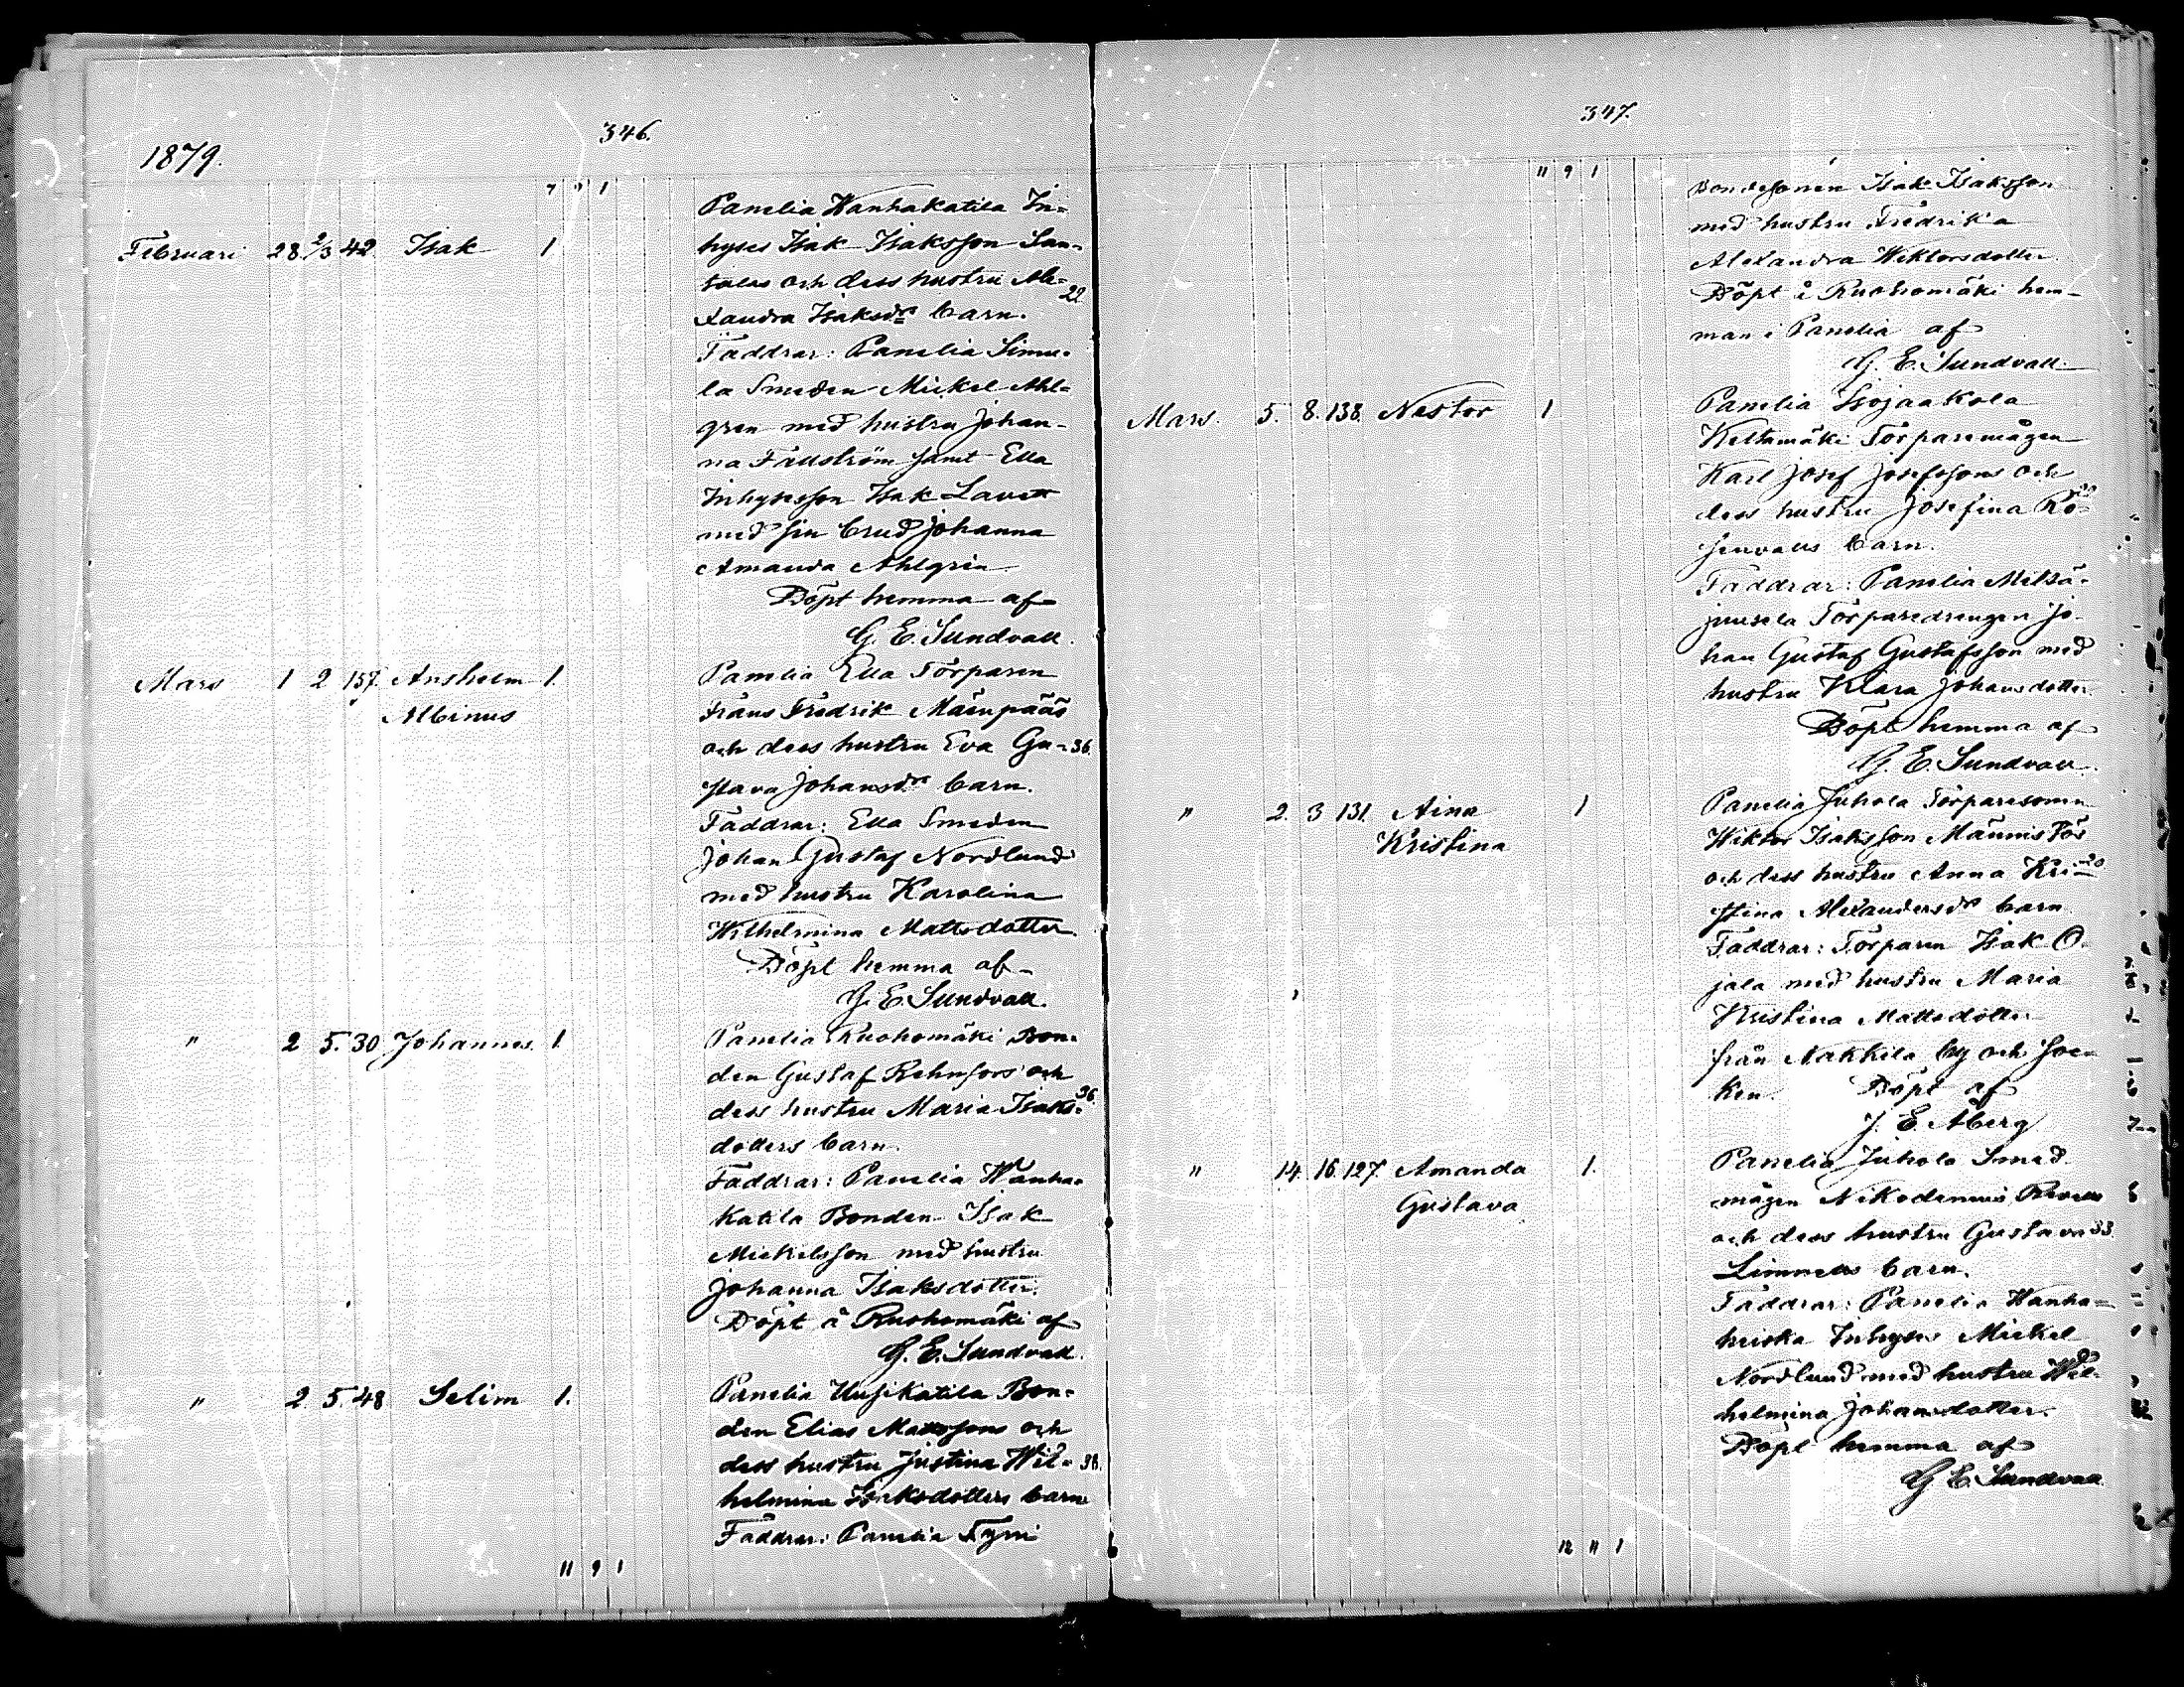 346.
1879.
7 9 1
Panelia Wanhakatila In-
Februari 28 2/3 42 Isak 1 hyses Isak Isaksson San-
talas och dess hustru Ale-
22
xandra Isaksdr barn.
Faddrar: Panelia Simu-
la Smeden Mickel Ahl-
gren med hustru Johan-
na Fällström samt Ella
Inhysesson Isak Lavett
med sin brud Johanna
Amanda Ahlgren
Döpt hemma af
G. E. Sundvall.
Mars 1 2 157. Anshelm 1. Panelia Ella Torparen
Albinus Frans Fredrik Mäenpääs
och dess hustru Eva Gu- 36.
stava Johansdr barn.
Faddrar: Ella Smeden
Johan Gustaf Nordlund
med hustru Karolina
Wilhelmina Mattsdotter.
Döpt hemma af
G. E. Sundvall.
" 2 5. 30 Johannes. 1. Panelia Ruohomäki Bon-
den Gustaf Rehnfors och
dess hustru Maria Isaks- 36.
dotters barn.
Faddrar: Panelia Wanha-
katila Bonden Isak
Mickelsson med hustru
Johanna Isaksdotter.
Döpt å Ruohomäki af
G. E. Sundvall.
" 2. 5. 48 Selim 1. Panelia Uusikatila Bon-
den Elias Mattssons och
dess hustru Justina Wil- 38.
helmina Isaksdotters barn
Faddrar: Panelia Tyni
11 9 1
347.
11 9 1
Bondesonen Isak Isaksson
med hustru Fredrika
Alexandra Wiktorsdotter.
Döpt å Ruohomäki hem-
man i Panelia af
G. E. Sundvall.
Mars. 5. 8. 138. Nestor 1 Panelia Isojaakola
Keltamäki Torparemågen
Karl Josef Josefssons och
dess hustru Josefina Ro-
senvalls barn.
Faddrar: Panelia Metsä-
juusela Torparedrengen Jo-
han Gustaf Gustafsson med
hustru Klara Johansdotter.
Döpt hemma af
G. E. Sundvall.
" 2. 3 131. Aina 1 Panelia Juhola Torparesonen
Kristina Wiktor Isaksson Männistös
och dess hustru Anna Kri- 20
stina Alexandersdr barn
Faddrar: Torparen Isak O-
jala med hustru Maria
Kristina Mattsdotter
från Nakkila by och soc-
ken. Döpt af
J. E. Åberg
" 14. 16. 127. Amanda 1. Panelia Juhola Smed-
Gustava mågen Nikodemus
och dess hustru Gustava 33.
Limnells barn.
Faddrar: Panelia Wanha-
heiska Inhyses Mickel
Nordlund med hustru Wil-
helmina Johansdotter.
Döpt hemma af
G. E. Sundvall.
12 11 1